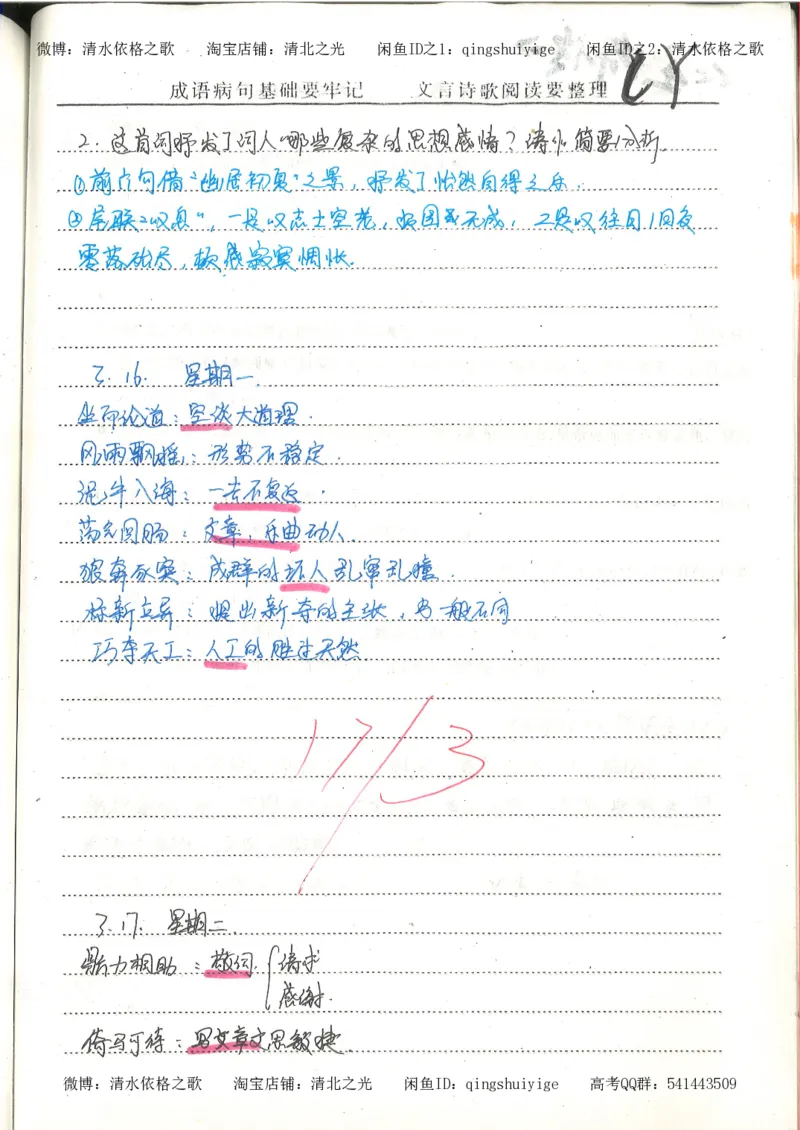 微博：清水依格之歌 淘宝店铺：清北之光 闲鱼ID之1：qingshuiyige 闲鱼ID之2：清水依格之歌
成语病句基础要牢记 文言诗歌阅读要整理
2. 这首词抒发了词人哪些复杂的思想感情？请你简要分析.
①前六句借“幽居初夏”之景，抒发了怡然自得之乐.
②尾联“叹息”，一是叹志士空老，报国无成，二是叹往日旧友
零落殆尽，顿感寂寞惆怅.
3.16. 星期一.
坐而论道：空谈大道理.
风雨飘摇：形势不稳定.
泥牛入海：一去不复返.
荡气回肠：文章、乐曲动人.
狼奔豕突：成群的坏人乱窜乱撞.
标新立异：提出新奇的主张，与一般不同
巧夺天工：人工的胜过天然
17/3
3.17. 星期二.
鼎力相助：敬词 {请求
感谢.
倚马可待：写文章文思敏捷.
微博：清水依格之歌 淘宝店铺：清北之光 闲鱼ID：qingshuiyige 高考QQ群：541443509